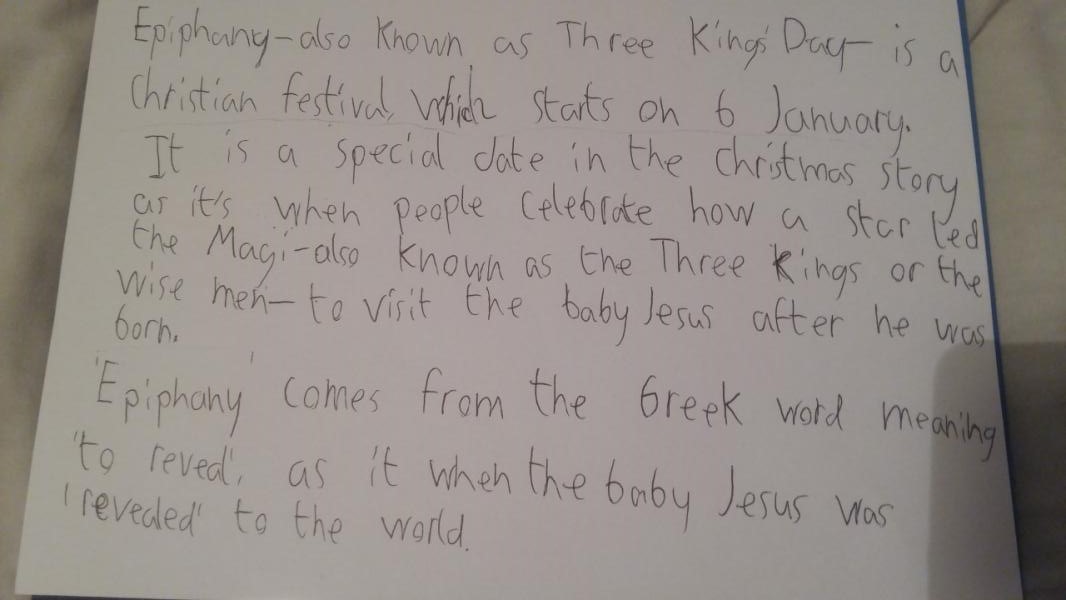 Epiphany-also known as Three Kings' Day- is a
Christian festival, which starts on 6 January.
It is a special date in the Christmas story
as it's when people celebrate how a star led
the Magi-also known as the Three Kings or the
wise men- to visit the baby Jesus after he was
born.
'Epiphany' comes from the Greek word meaning
'to reveal', as it when the baby Jesus was
'revealed' to the world.